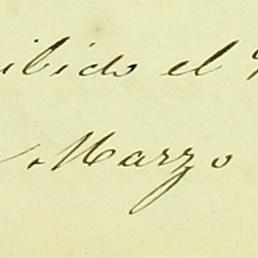 ibido el
Marzo